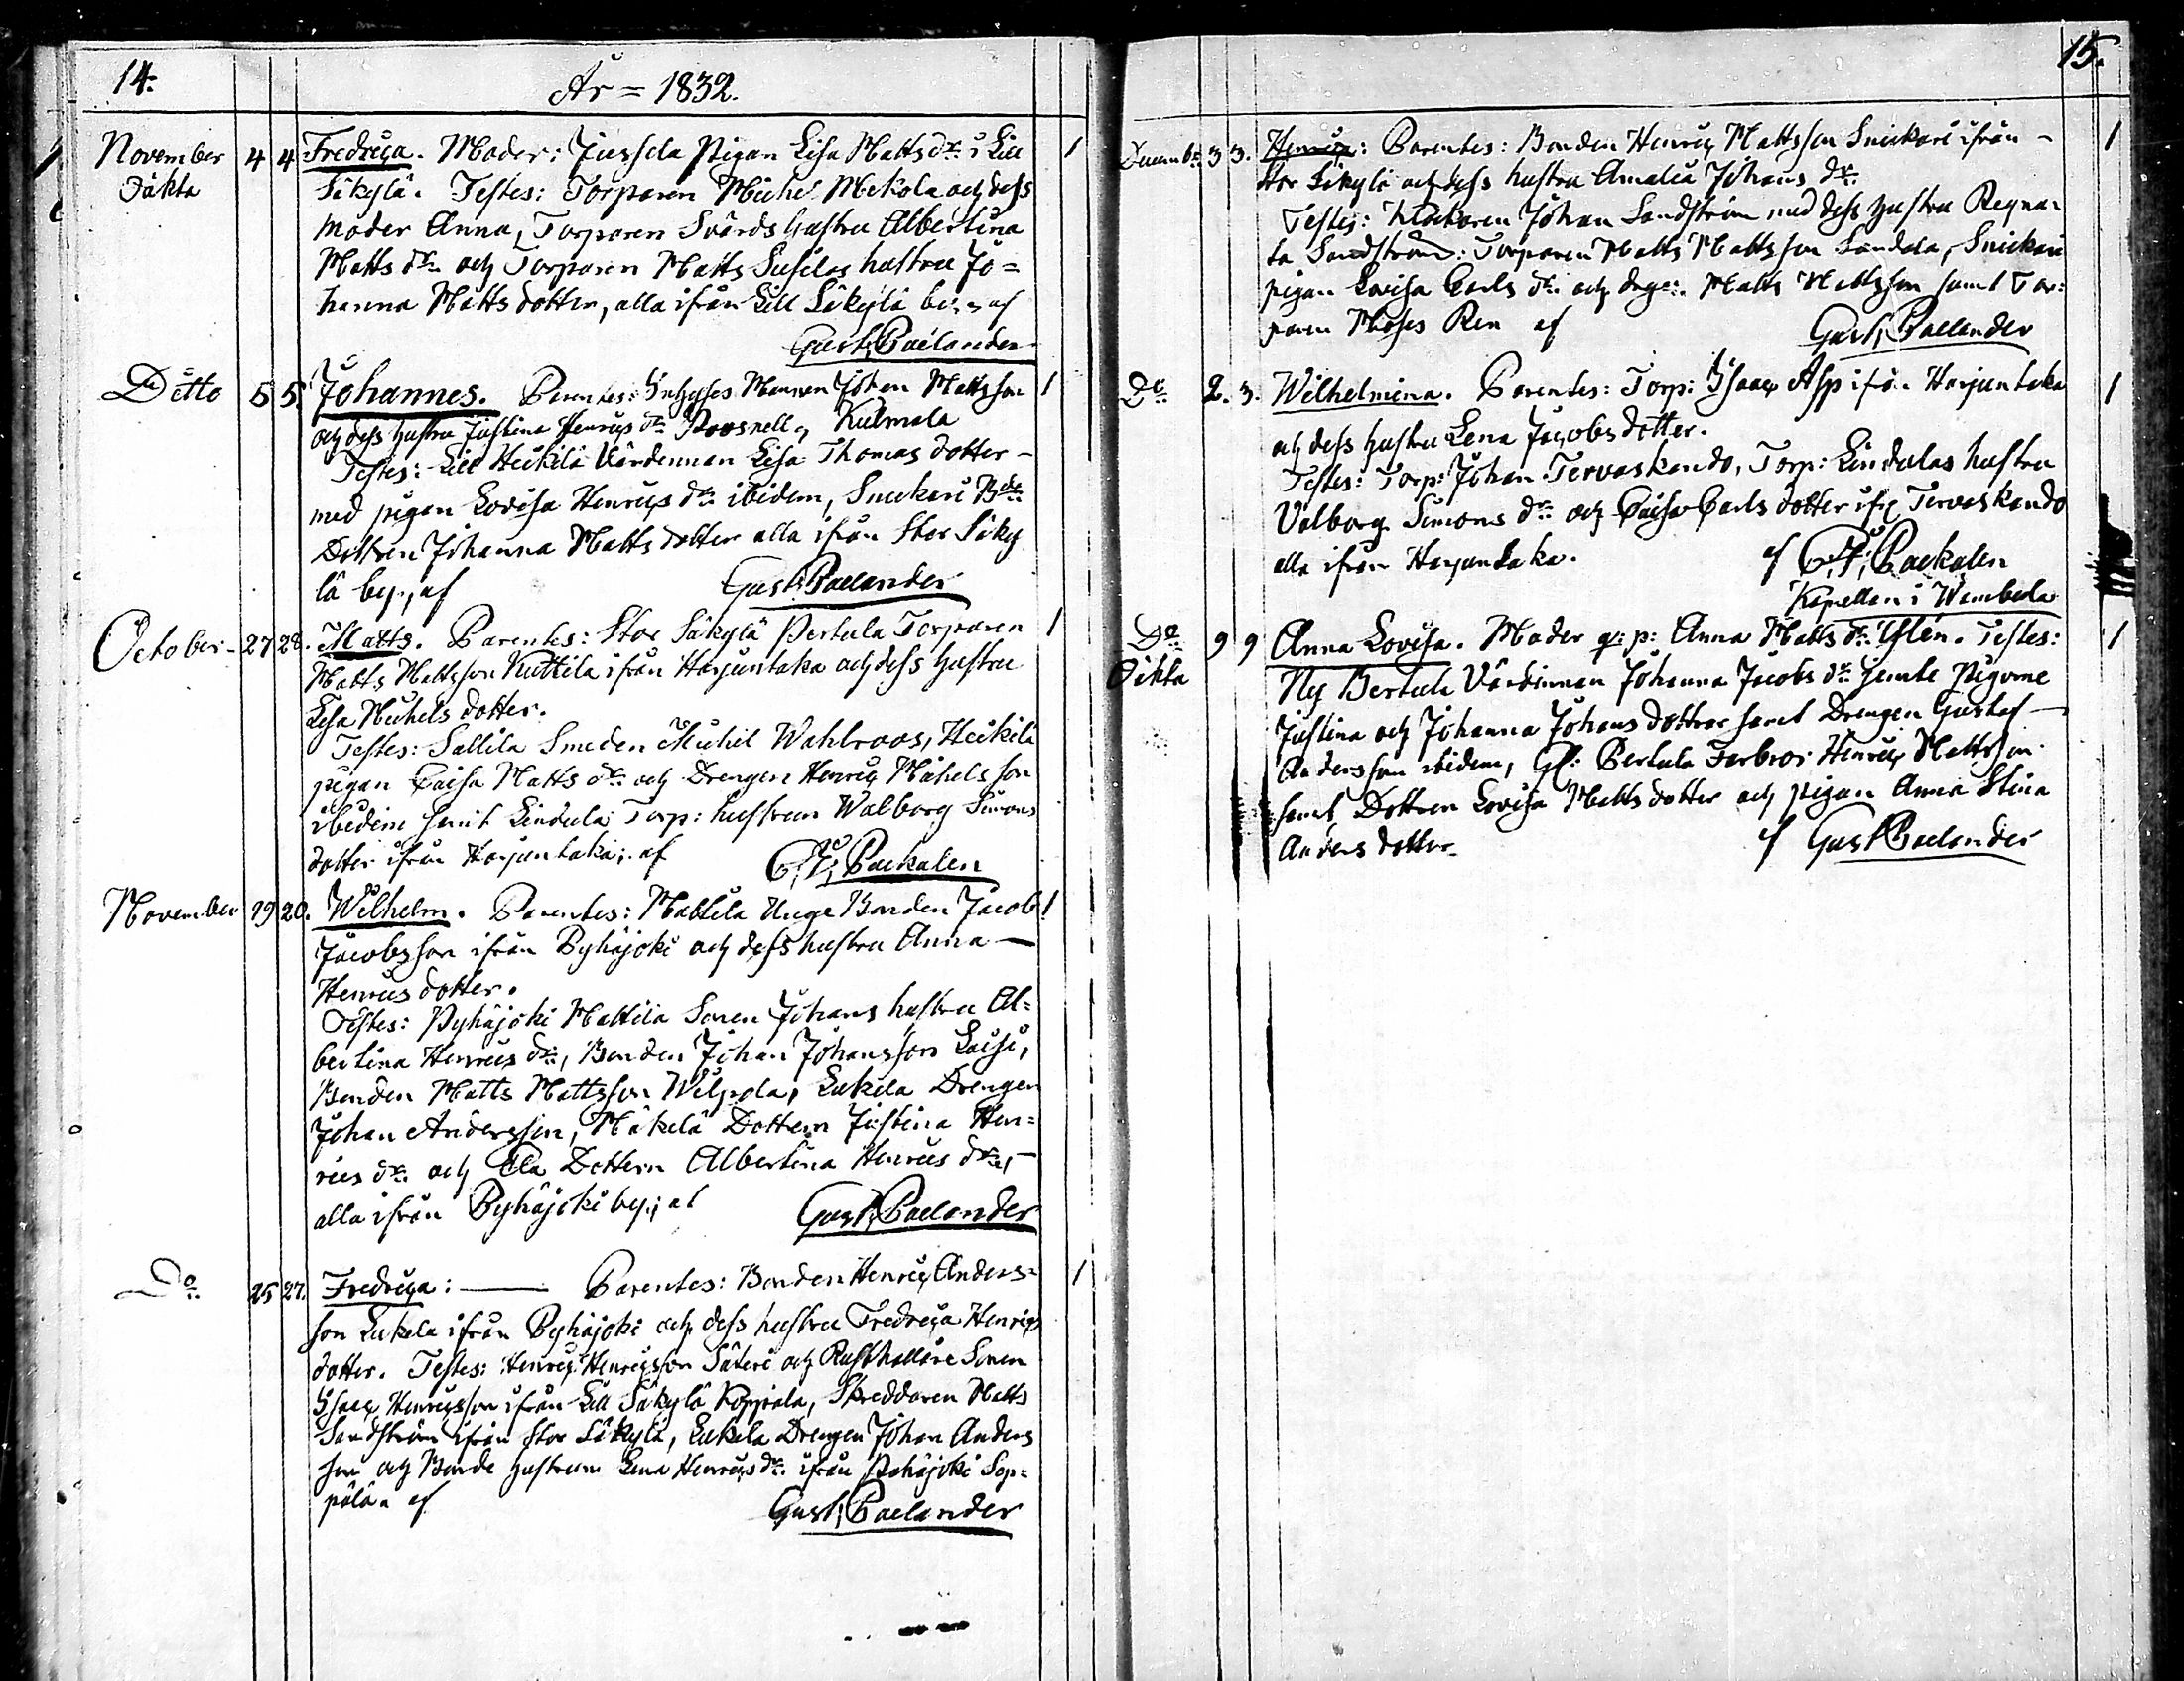 14.
År = 1832.
November 4 4 Fredrica. Moder: Jussila Pigan Lisa Matts dr: i Lill 1
Oäkta Säkylä. Testes: Torparen Michel Mekola och dess
moder Anna, Torparen Svärds hustru Albertina
Matts dr: och Torparen Matts Susilas hustru Jo=
hanna Matts dotter, alla ifrån Lill Säkylä by: af
Gust. Paelander
Ditto 5 5. Johannes. Parentes: Inhyses Mannen Johan Mattsson 1
och dess hustru Justina Henrics dr: Roosnell Kulmala
Testes: Lill Heikilä Värdinnan Lisa Thomas dotter -
med pigan Lovisa Henrics dr: ibidem, Snickari Bde
Dottren Johanna Matts dotter alla ifrån Stor Säky
lä by., af Gust. Paelander
October - 27 28. Matts. Parentes: Stor Säkylä Pertula Torparen 1
Matts Mattsson Kuttila ifrån Harjuntaka och dess hustru
Lisa Michels dotter.
Testes: Sallila Smeden Michel Wahlroos, Heikilä
pigan Caisa Matts dr: och Drengen Henric Michels son
ibidem samt Lindula Torp: hustrun Walborg Simons
dotter ifrån Harjuntaka; af Packalen
November 19 20. Wilhelm. Parentes: Mattila Unge Bonden Jacob 1
Jacobsson ifrån Pyhäjoki och dess hustru Anna —
Henrics dotter.
Testes: Pyhäjoki Mattila Sonen Johans hustru Al=
bertina Henrics dr:, Bonden Johan Johansson Laisi,
Bonden Matts Mattsson Wilpola, Eukela Drengen
Johan Andersson, Mäkelä Dottren Justina Hen=
rics dr: och Ala Dottern Albertina Henrics dr:, -
alla ifrån Pyhäjoki by; af Gust. Paelander
Do 25 27. Fredrica: — Parentes: Bonden Henric Anders= 1
son Eukela ifrån Pyhäjoki och dess hustru Fredrica Henrics
dotter. Testes: Henric Henricsson Säteri och Rusthollare Sonen
Isaac Henricsson ifrån Lill Säkylä Koppala, Skreddaren Matts
Sandström ifrån Stor Säkylä, Eukela Drengen Johan Anders
son och Bonde hustrun Lena Henrics dr: ifrån Pyhäjoki Sep=
pälä. af Gust. Paelander
15.
Decembr: 3 3. Henric: Parentes: Bonden Henric Mattsson Snickari ifrån - 1
Stor Säkylä och dess hustru Amalia Johans dr:
Testes: Klockaren Johan Sandström med dess hustru Regna=
ta Sandström: Torparen Matts Mattsson Sandela, Snickari
pigan Lovisa Carls dr: och dräg: Matts Mattsson samt Tor=
paren Moses Ren af Gust. Paelander
Do 2. 3. Wilhelmina. Parentes: Torp: Isaac Asp ifrån Harjuntaka 1
och dess hustru Lena Jacobs dotter.
Testes: Torp: Johan Tervaskando, Torp: Lindulas hustru
Valborg Simons dr: och Caisa Carls dotter ifr. Tervaskando
alla ifrån Harjuntaka. af Packalen
Kapellan i Wambula
Do 9 9 Anna Lovisa. Moder q: p: Anna Matts dr: Uslén. Testes: 1
Oäkta Ny Bertula Värdinnan Johanna Jacobs dr: jemte Pigorne
Justina och Johanna Johans döttrar samt Drengen Gustaf —
Andersson ibidem, Gl: Bertula Farbror Henric Mattsson
samt Dottren Lovisa Matts dotter och pigan Anna Stina
Anders dotter. af Gust Paelander